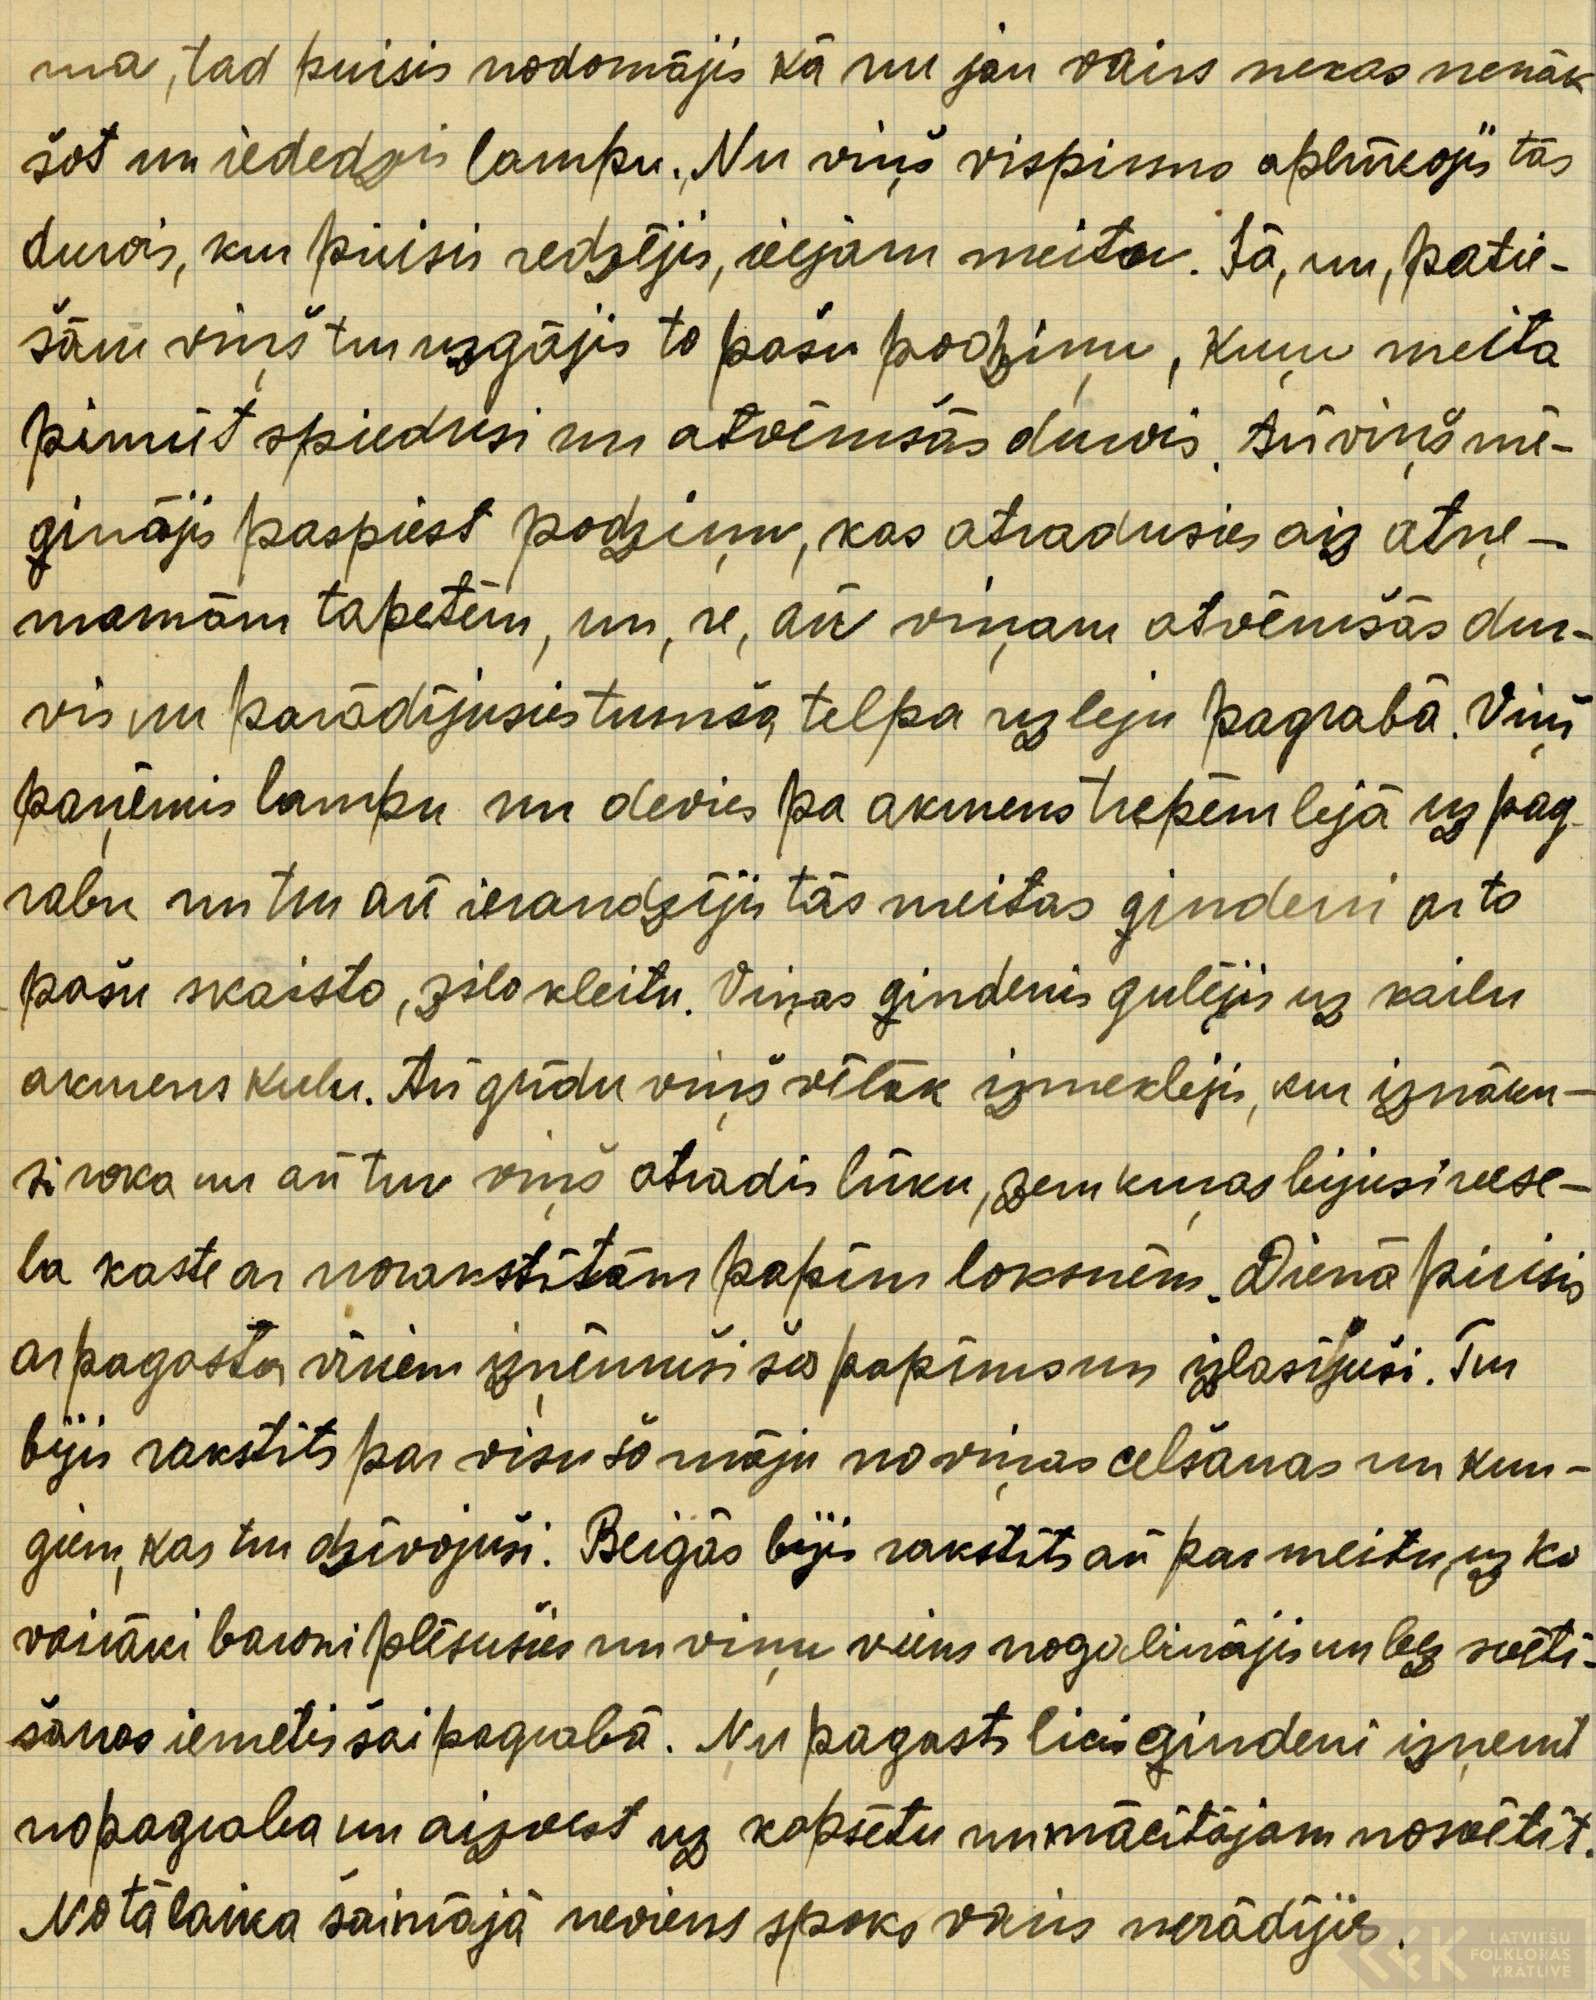 ma, tad puisis nodomājis kā nu jau vairs nekas nenāk
šot un iededzis lampu. Nu viņš vispirms aplūkojis tās
durvis, kur puisis redzējis, ieejam meitu. Jā, un, patie-
šām viņš tur uzgājis to pašu podziņu, kuŗu meita
pirmīt spiedusi un atvērušās durvis. Arī viņš mē-
ģinājis paspiest podziņu, kas atradusies aiz atņe-
mamām tapetēm, un, re, arī viņam atvērušās dur-
vis un parādījusies tumša telpa uz leju pagrabā. Viņš
paņēmis lampu un devies pa akmens trepēm lejā uz pag-
rabu un tur arī ieraudzījis tās meitas ģindeni ar to
pašu skaisto, zilo kleitu. Viņas ģindenis gulējis uz kailu
akmens kulu. Arī grīdu viņš vēlāk izmeklējis, kur iznāku-
si roka un arī tur viņš atradis lūku, zem kuŗas bijusi vese-
la kaste ar norakstītām papīru loksnēm. Dienā puisis
ar pagasta vīriem izņēmuši šos papīrus un izlasījuši. Tur
bijis rakstīts par visu šo māju no viņas celšanas un kun-
giem, kas tur dzīvojuši. Beigās bijis rakstīts arī par meitu, uz ko
vairāki baroni plēsušies un viņu viens nogalinājis un bez svētī-
šanas iemetis šai pagrabā. Nu pagasts licis ģindeni izņemt
no pagraba un aizvest uz kapsētu un mācītājam nosvētīt.
No tā laika šai mājā neviens spoks vairs nerādījies.
LATVIEŠU
FOLKLORAS
KRĀTUVE